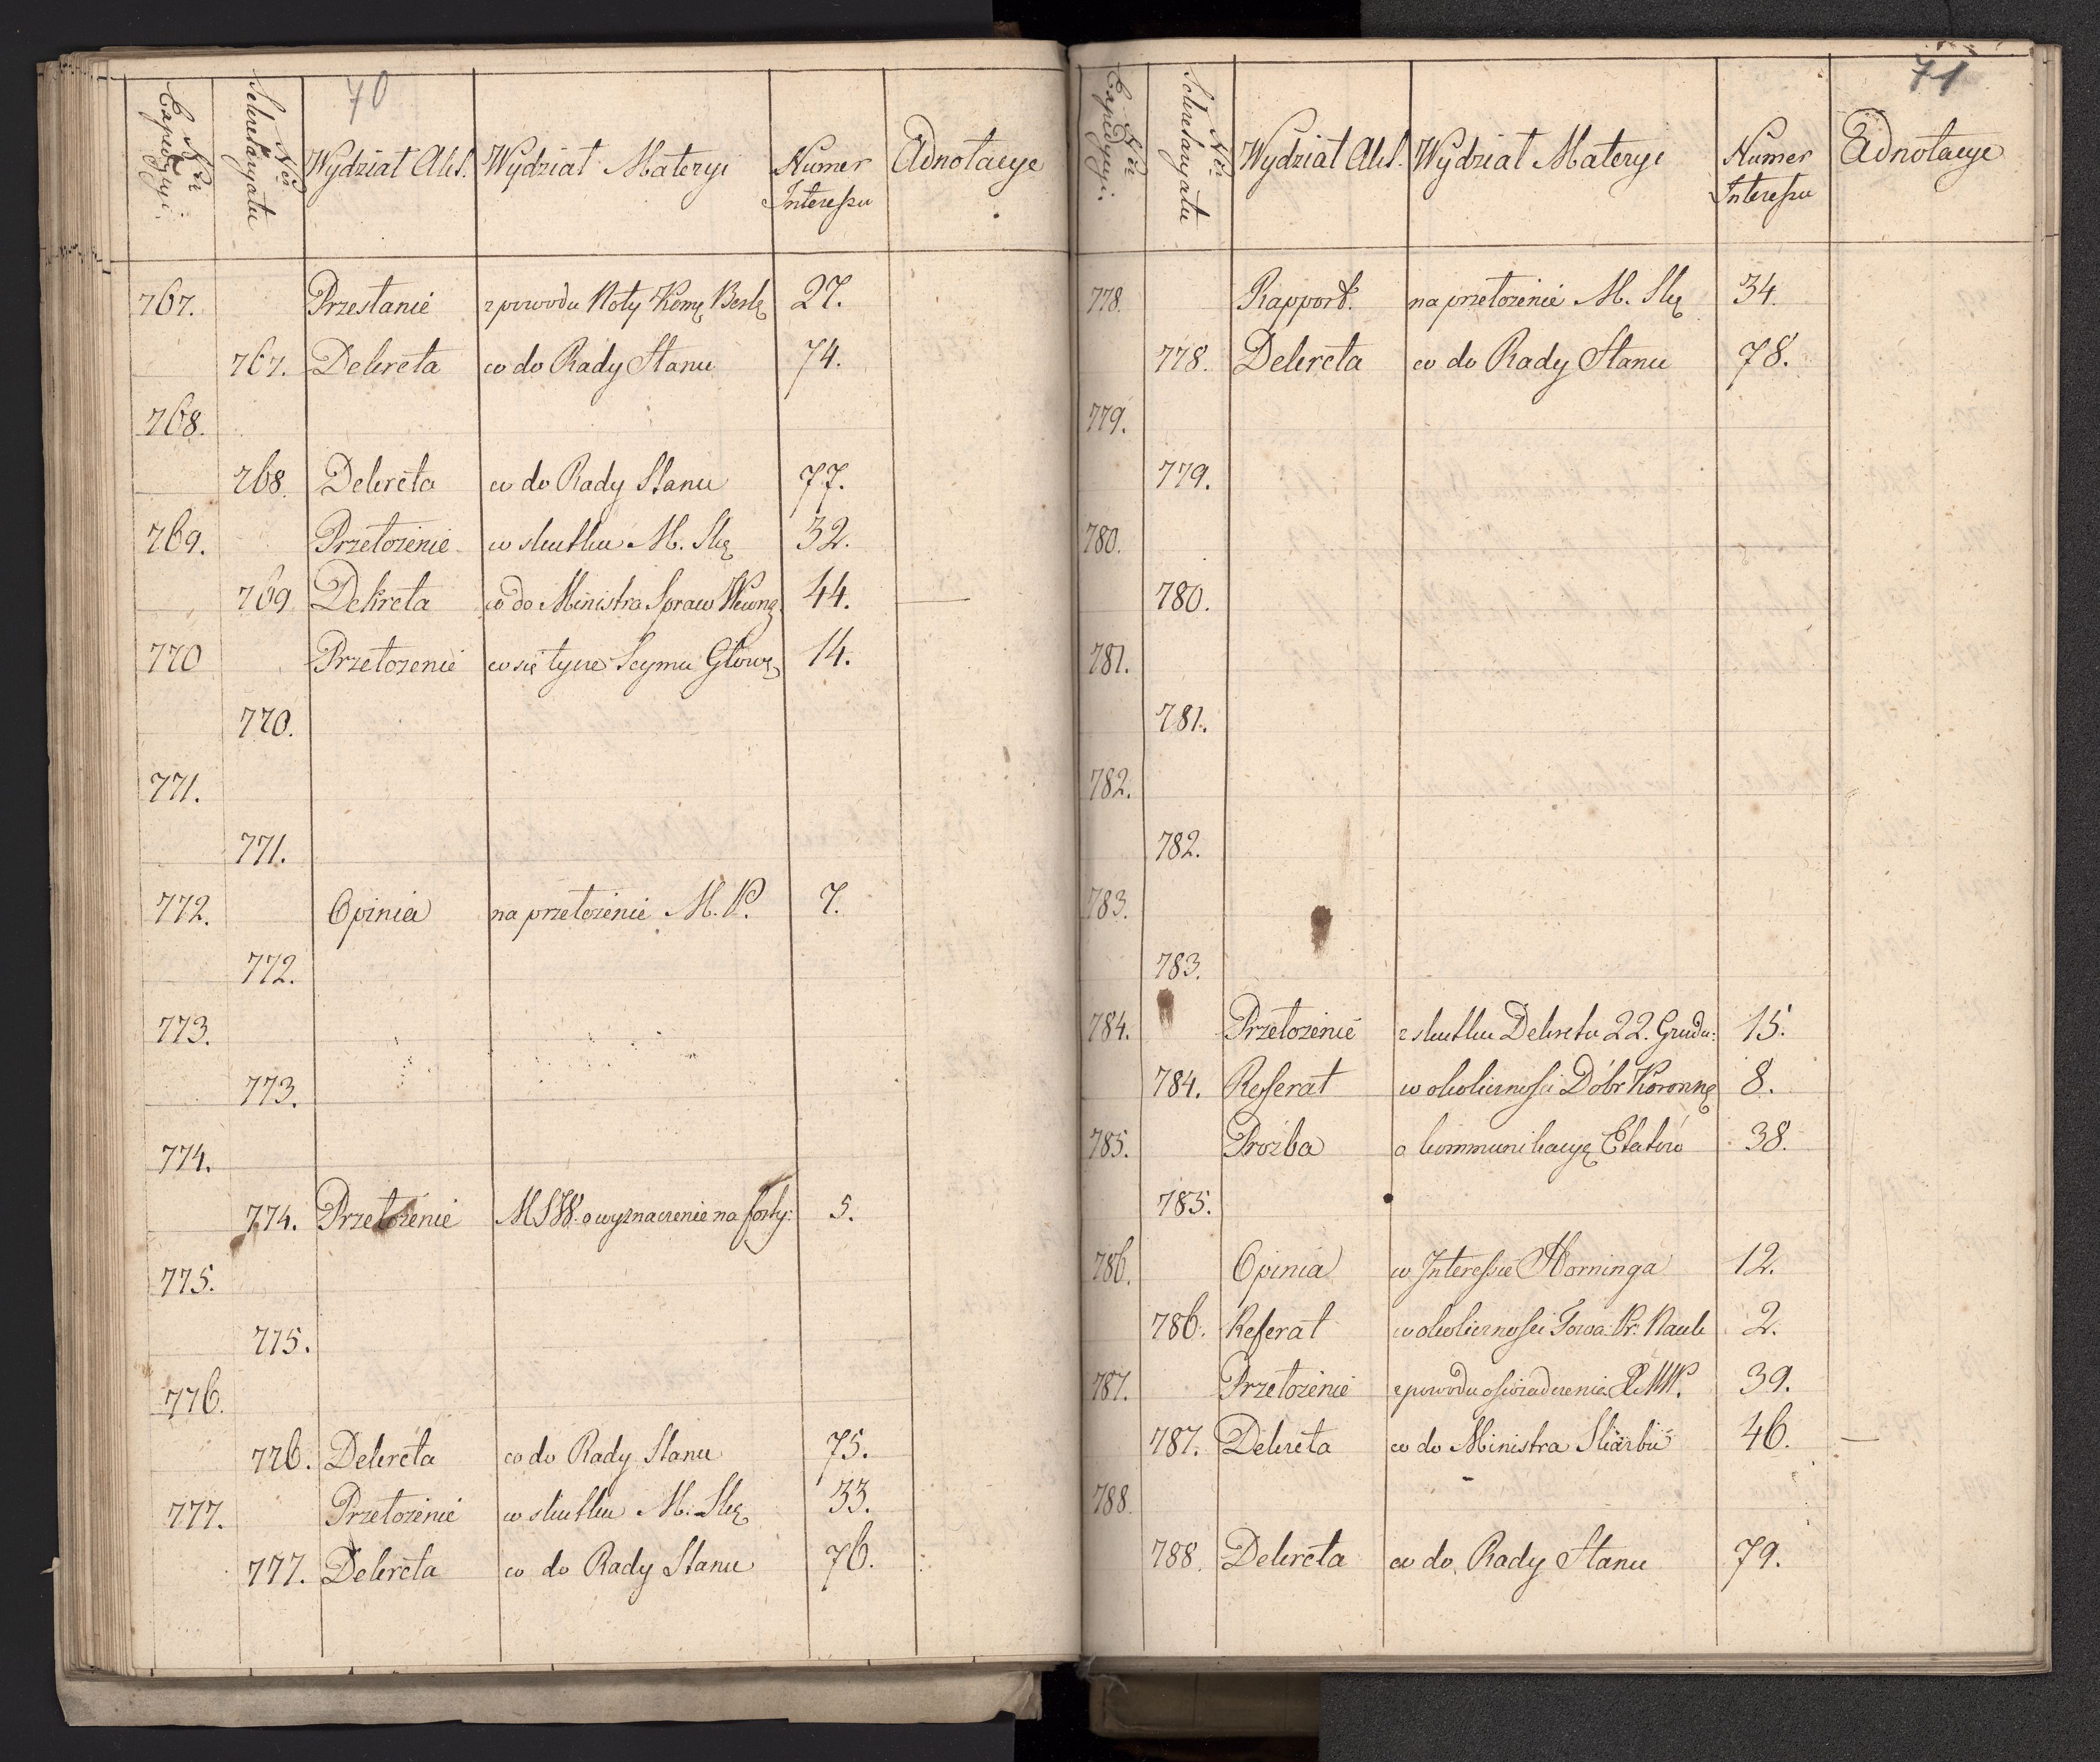 70
Nr Expedycyi. Nr Sekretaryatu Wydział Akt. Wydział Materyi Numer Interessu Adnotacye
767. Przesłanie z powodu Noty 27.
767. Dekreta co do Rady Stanu 74.
768.
768. Dekreta co do Rady Stanu 77.
769. Przełożenie w skutku M. Skę 32.
769 Dekreta co do Ministra Spraw Wewnę 44. —
770 Przełożenie co się tycze Seymu Głowę 14.
770.
771.
771.
772. Opinia na przełożenie M. P. 7.
772.
773.
773.
774.
774. Przełożenie MSW. o wyznaczenie na forty: 5.
775.
775.
776.
776. Dekreta co do Rady Stanu 75.
777. Przełożenie w skutku M. Skę 33.
777. Dekreta co do Rady Stanu 76.
71
Nr Expedycyi. Nr Sekretaryatu Wydział Akt. Wydział Materyi Numer Interessu Adnotacye
778. Rapport. na przełożenie M. Skę 34.
778. Dekreta co do Rady Stanu 78.
779.
779.
780.
780.
781.
781.
782.
782.
783.
783.
784. Przełożenie z skutku Dekretu 22. Grudn: 15.
784. Refferat w okoliczności Dóbr Koronnę 8.
785. Proźba o kommunikacyę Etatów 38.
785.
786. Opinia w Interessie Horninga 12.
786. Refferat w okoliczności Towa: Pr: Nauk 2.
787. Przełożenie z powodu oświadczenia 39.
787. Dekreta co do Ministra Skarbu 46. —
788.
788. Dekreta co do Rady Stanu 79.